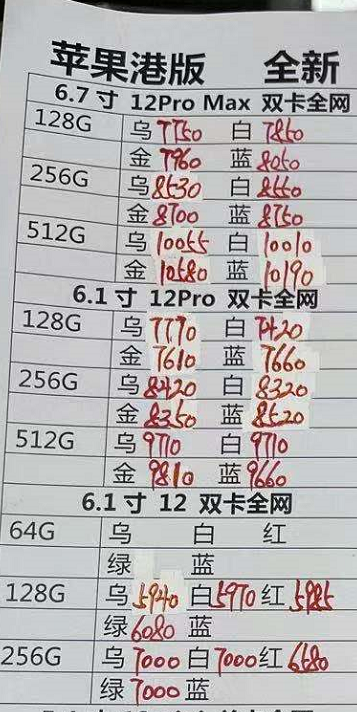 苹果港版 全新
6.7寸 12Pro Max 双卡全网
128G 乌7750 白7850
金7960 蓝8050
256G 乌8530 白8550
金8700 蓝8750
512G 乌10055 白10010
金10580 蓝10190
6.1寸 12Pro 双卡全网
128G 乌7770 白7420
金7610 蓝7660
256G 乌8420 白8320
金8350 蓝8520
512G 乌9710 白9710
金9810 蓝9660
6.1寸 12 双卡全网
64G 乌 白 红
绿 蓝
128G 乌5940 白5970 红5985
绿6080 蓝
256G 乌7000 白7000 红6580
绿7000 蓝